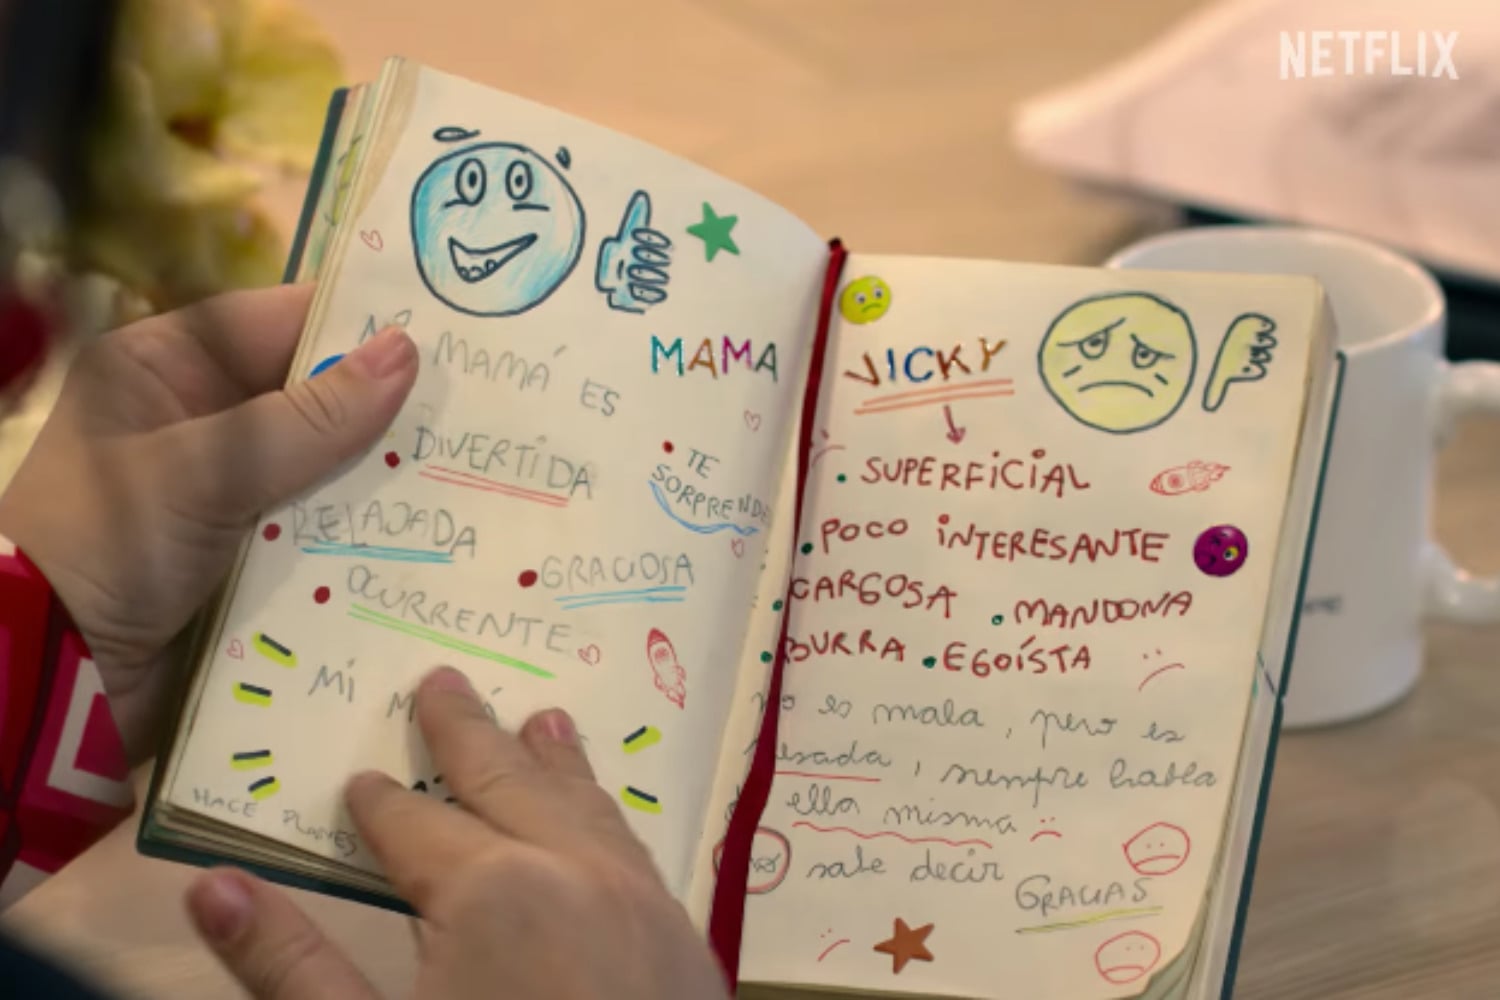 NETFLIX
MAMÁ ES
MAMA
DIVERTIDA
TE
SORPRENDE
RELAJADA
GRACIOSA
OCURRENTE
MI
HACE PLANES
VICKY
SUPERFICIAL
POCO INTERESANTE
CARGOSA . MANDONA
BURRA . EGOÍSTA
no es mala, pero es
pesada, siempre habla
ella misma
sabe decir
GRACIAS